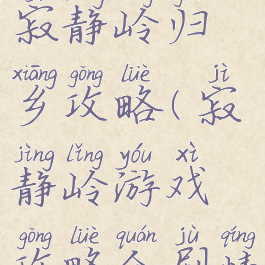 寂静岭归
xiāng gōng lüè jì
乡攻略(寂
jìng lǐng yóu xì
静岭游戏
gōng lüè quán jù qíng
攻略全剧情